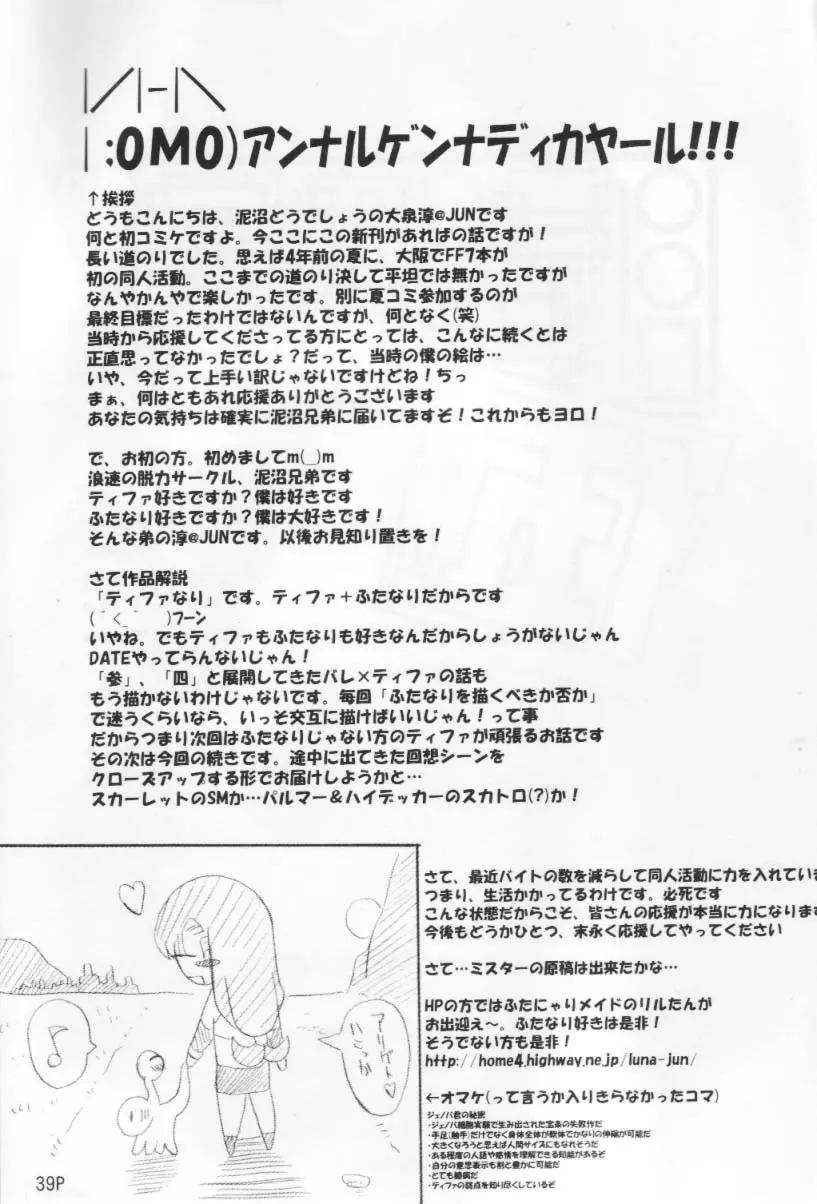 |／|-|＼
| ;OMO)アンナルゲンナディカヤール!!!
↑挨拶
どうもこんにちは、泥沼どうでしょうの大泉淳@JUNです
何と初コミケですよ。今ここにこの新刊があればの話ですが!
長い道のりでした。思えば4年前の夏に、大阪でFF7本が
初の同人活動。ここまでの道のり決して平坦では無かったですが
なんやかんやで楽しかったです。別に夏コミ参加するのが
最終目標だったわけではないんですが、何となく(笑)
当時から応援してくださってる方にとっては、こんなに続くとは
正直思ってなかったでしょ?だって、当時の僕の絵は…
いや、今だって上手い訳じゃないですけどね!ちっ
まぁ、何はともあれ応援ありがとうございます
あなたの気持ちは確実に泥沼兄弟に届いてますぞ!これからもヨロ!
で、お初の方。初めましてm(_)m
浪速の脱力サークル、泥沼兄弟です
ティファ好きですか?僕は好きです
ふたなり好きですか?僕は大好きです!
そんな弟の淳@JUNです。以後お見知り置きを!
さて作品解説
「ティファなり」です。ティファ+ふたなりだからです
(´<_｀ )フーン
いやね。でもティファもふたなりも好きなんだからしょうがないじゃん
DATEやってらんないじゃん!
「参」、「四」と展開してきたバレ×ティファの話も
もう描かないわけじゃないです。毎回「ふたなりを描くべきか否か」
で迷うくらいなら、いっそ交互に描けばいいじゃん!って事
だからつまり次回はふたなりじゃない方のティファが頑張るお話です
その次は今回の続きです。途中に出てきた回想シーンを
クローズアップする形でお届けしようかと…
スカーレットのSMか…パルマー&ハイデッカーのスカトロ(?)か!
さて、最近バイトの数を減らして同人活動に力を入れていま
つまり、生活かかってるわけです。必死です
こんな状態だからこそ、皆さんの応援が本当に力になります
今後もどうかひとつ、末永く応援してやってください
さて…ミスターの原稿は出来たかな…
HPの方ではふたにゃりメイドのリルたんが
お出迎え〜。ふたなり好きは是非!
そうでない方も是非!
http://home4.highway.ne.jp/luna-jun/
←オマケ(って言うか入りきらなかったコマ)
ジェノバ君の秘密
・ジェノバ細胞実験で生み出された宝条の失敗作だ
・手足(触手)だけでなく身体全体が軟体でかなりの伸縮が可能だ
・大きくなろうと思えば人間サイズにもなれそうだ
・ある程度の人語や感情を理解できる知能があるぞ
・自分の意思表示も割と豊かに可能だ
・とても臆病だ
・ティファの弱点を知り尽くしているぞ
39P